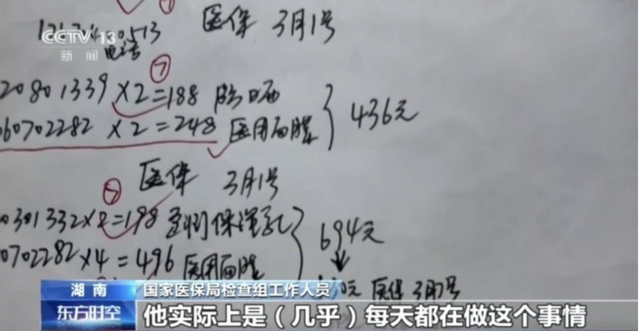 CCTV 13
新闻
医保 3月1号
⑦
20801339 ×2=188 防晒
060702282 ×2=248 医用面膜 436元
医保 3月1号
=198
694元
0702282×4=496 医用面膜
医保 3月7号
湖南 国家医保局检查组工作人员
东方时空 他实际上是（几乎）每天都在做这个事情